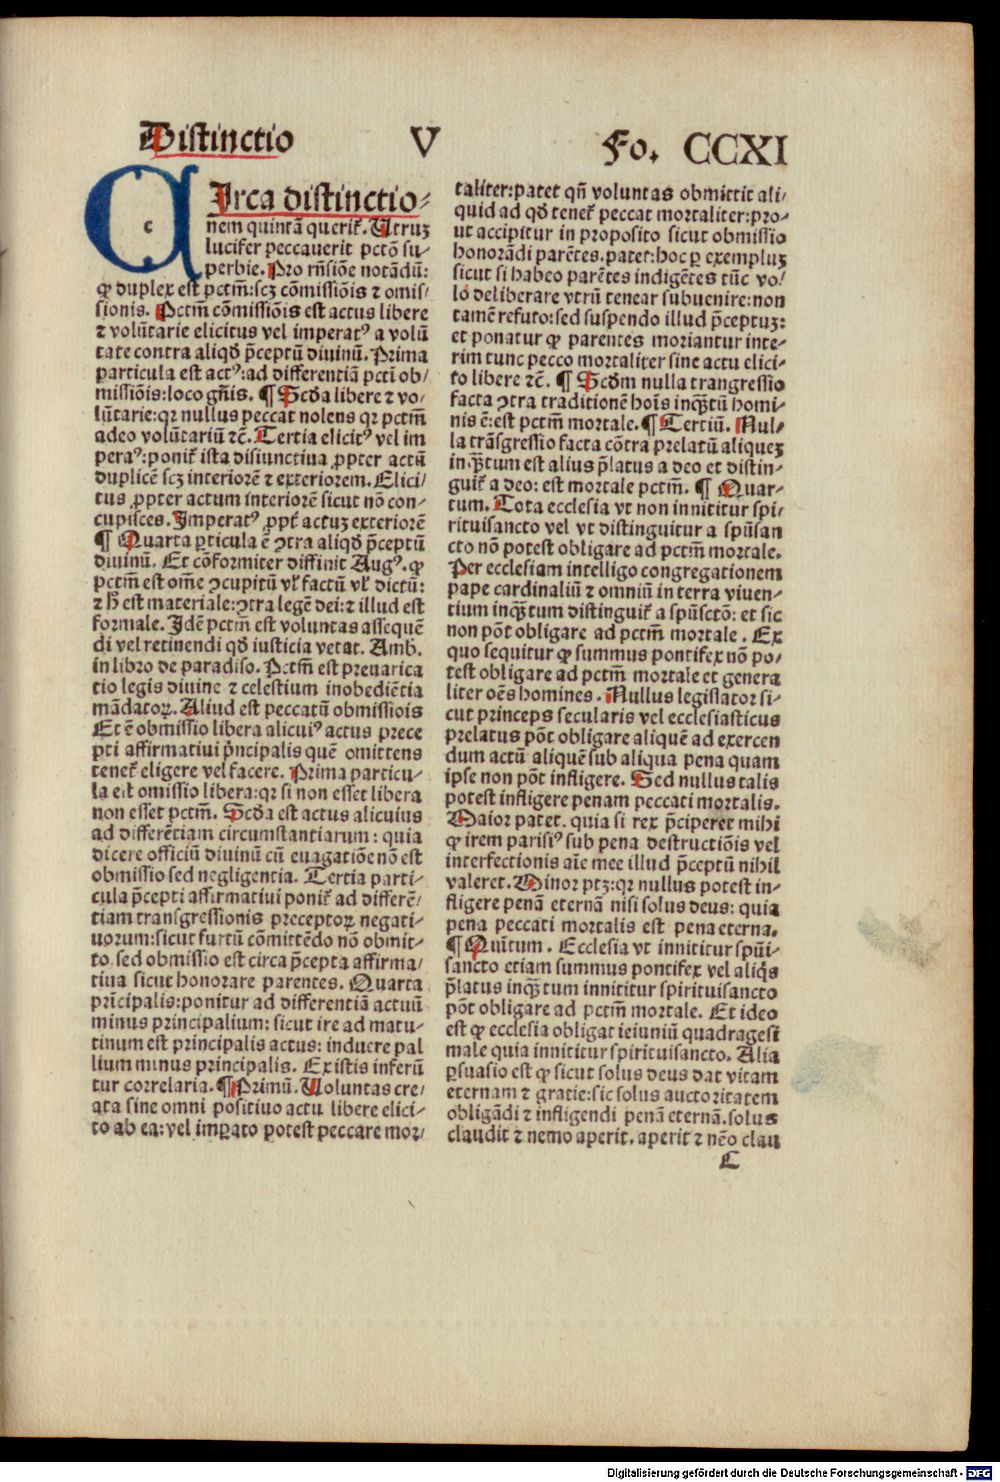 Distinctio V Fo. CCXI
CIrca distinctio-
nem quintã querit᷑. Utruz
lucifer peccauerit pctõ su-
perbie. Pro rñsiõe notãdũ:
ꝙ duplex est pctm̃: scz cõmissiõis ⁊ omis-
sionis. Pctm̃ cõmissiõis est actus libere
⁊ volũtarie elicitus vel imperatꝰ a volũ
tate contra aliqđ p̃ceptũ diuinũ. Prima
particula est actꝰ: ad differentiã pcti ob-
missiõis: loco gñis. ¶ Scđa libere ⁊ vo-
lũtarie: qꝛ nullus peccat nolens qꝛ pctm̃
adeo volũtariũ ⁊c̃. Tertia elicitꝰ vel im
peraꝰ: ponit᷑ ista disiunctiua ꝓpter actũ
duplicẽ scz interiorẽ ⁊ exteriorem. Elici-
tus ꝓpter actum interiorẽ sicut nõ con-
cupisces. Imperatꝰ ꝓpt᷑ actuz exteriorẽ
¶ Quarta ꝑticula ẽ ꝯtra aliqđ p̃ceptũ
diuinũ. Et cõformiter diffinit Augꝰ. ꝙ
pctm̃ est om̃e ꝯcupitũ vl᷑ factũ vl᷑ dictũ:
⁊ h̃ est materiale: ꝯtra legẽ dei: ⁊ illud est
formale. Idẽ pctm̃ est voluntas assequẽ
di vel retinendi qđ iusticia vetat. Amb.
in libro de paradiso. Pctm̃ est preuarica
tio legis diuine ⁊ celestium inobediẽtia
mãdatoꝝ. Aliud est peccatũ obmissiois
Et ẽ obmissio libera alicuiꝰ actus prece
pti affirmatiui p̃ncipalis quẽ omittens
tenet᷑ eligere vel facere. Prima particu-
la est omissio libera: qꝛ si non esset libera
non esset pctm̃. Scđa est actus alicuius
ad differẽtiam circumstantiarum: quia
dicere officiũ diuinũ cũ euagatiõe nõ est
obmissio sed negligentia. Tertia parti-
cula p̃cepti affirmatiui ponit᷑ ad differẽ-
tiam transgressionis preceptoꝝ negati-
uorum: sicut furtũ cõmittẽdo nõ obmit-
to. sed obmissio est circa p̃cepta affirma-
tiua sicut honorare parentes. Quarta
prĩcipalis: ponitur ad differentiã actuũ
minus principalium: sicut ire ad matu-
tinum est principalis actus: induere pal
lium minus principalis. Ex istis inferũ
tur correlaria. ¶ Primũ. Voluntas cre-
ata sine omni positiuo actu libere elici-
to ab ea: vel imꝑato potest peccare mor-
taliter: patet qñ voluntas obmittit ali-
quid ad qđ tenet᷑ peccat mortaliter: pro-
ut accipitur in proposito sicut obmissio
honorãdi parẽtes. patet: hoc ꝑ exempluz
sicut si habeo parẽtes indigẽtes tũc vo-
lo deliberare vtrũ tenear subuenire: non
tamẽ refuto: sed suspendo illud p̃ceptuz:
et ponatur ꝙ parentes moriantur inte-
rim tunc pecco mortaliter sine actu elici-
to libere ⁊c̃. ¶ Scđm nulla trangressio
facta ꝯtra traditionẽ hoĩs inqꝫtũ homi-
nis ẽ: est pctm̃ mortale. ¶ Tertiũ. Nul-
la trãsgressio facta cõtra prelatũ aliquez
in.qꝫtum est alius p̃latus a deo et distin-
guit᷑ a deo: est mortale pctm̃. ¶ Quar-
tum. Tota ecclesia vt non innititur spi-
rituisancto vel vt distinguitur a spũsan
cto nõ potest obligare ad pctm̃ mortale.
Per ecclesiam intelligo congregationem
pape cardinaliũ ⁊ omniũ in terra viuen-
tium inqꝫtum distinguit᷑ a spũsctõ: et sic
non põt obligare ad pctm̃ mortale. Ex
quo sequitur ꝙ summus pontifex nõ po-
test obligare ad pctm̃ mortale et genera
liter oẽs homines. Nullus legislator si-
cut princeps secularis vel ecclesiasticus
prelatus põt obligare aliquẽ ad exercen
dum actũ aliquẽ sub aliqua pena quam
ipse non põt infligere. Sed nullus talis
potest infligere penam peccati mortalis.
Maior patet. quia si rex p̃ciperet mihi
ꝙ irem parisiꝰ sub pena destructiõis vel
interfectionis aĩe mee illud p̃ceptũ nihil
valeret. Minor ptz: qꝛ nullus potest in-
fligere penã eternã nisi solus deus: quia
pena peccati mortalis est pena eterna.
¶ Quĩtum. Ecclesia vt innititur spũi-
sancto etiam summus pontifex vel aliq̃s
p̃latus inqꝫtum innititur spirituisancto
põt obligare ad pctm̃ mortale. Et ideo
est ꝙ ecclesia obligat ieiuniũ quadragesi
male quia innititur spirituisancto. Alia
ꝑsuasio est ꝙ sicut solus deus dat vitam
eternam ⁊ gratie: sic solus auctoritatem
obligãdi ⁊ infligendi penã eternã. solus
claudit ⁊ nemo aperit. aperit ⁊ nẽo clau
C
Digitalisierung gefördert durch die Deutsche Forschungsgemeinschaft - DFG